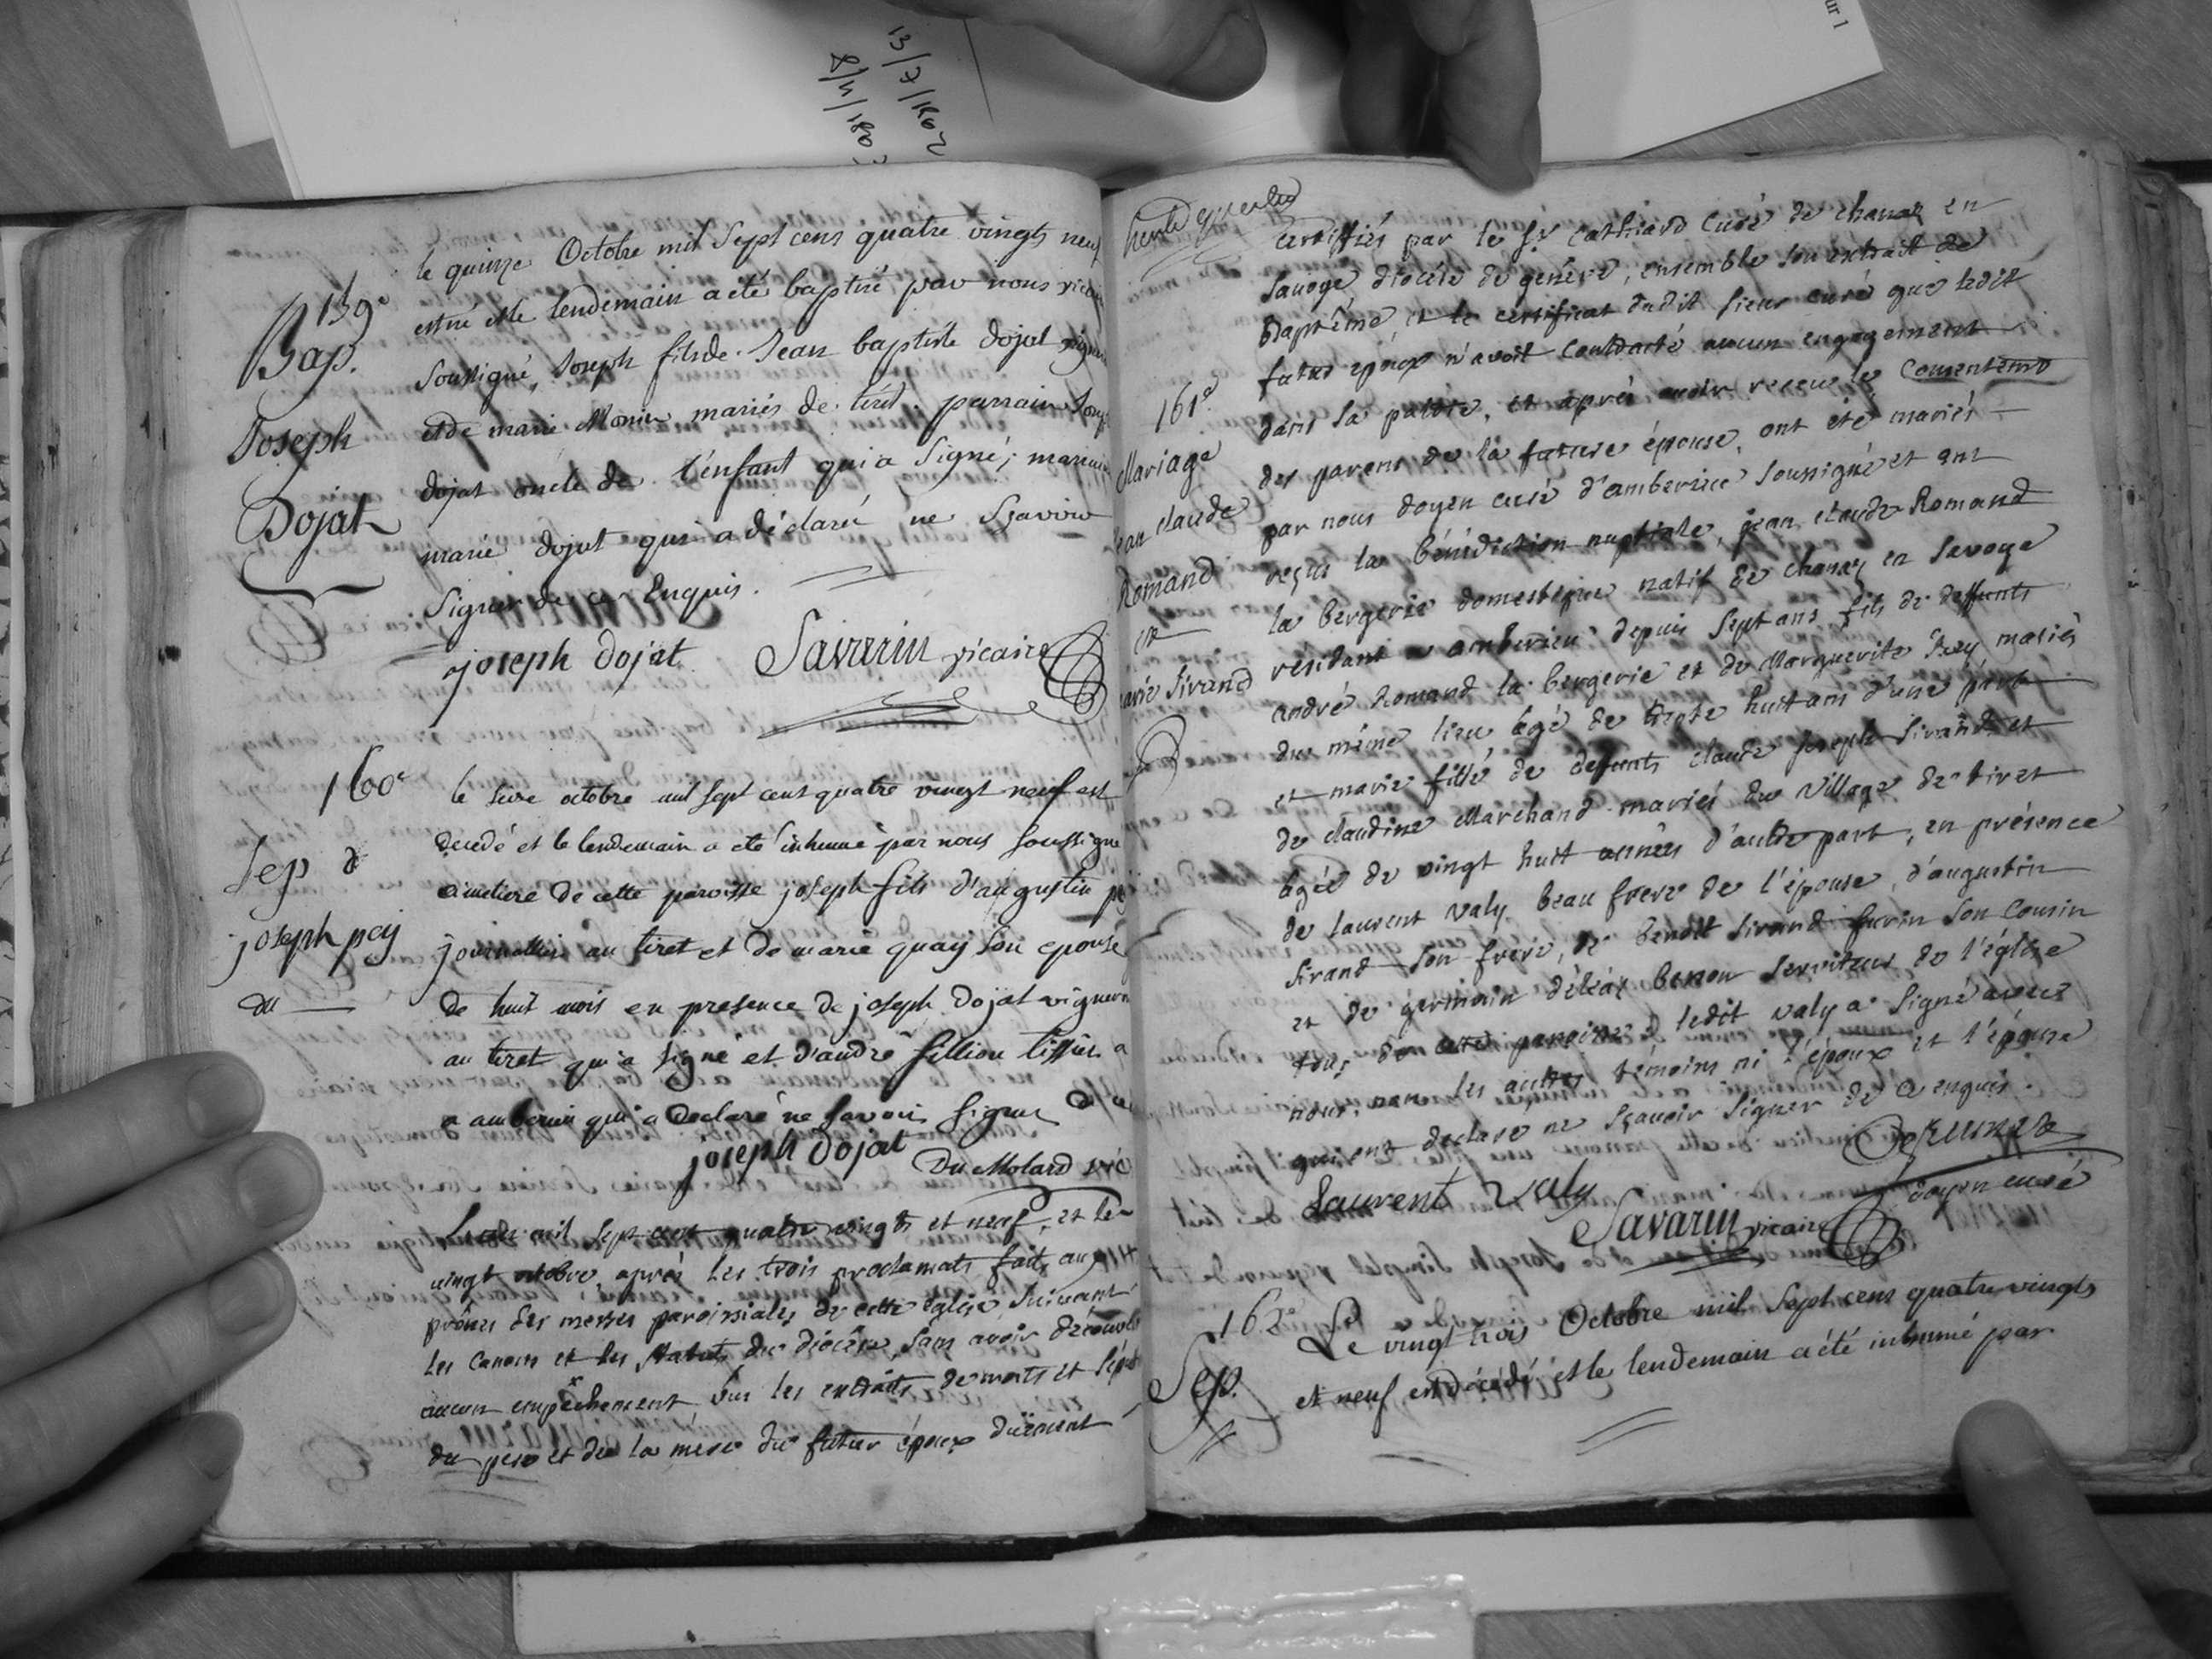 ur 1
13/7/1802
2/4/180
159e
Bap.
Joseph
Dojat
le quinze Octobre mil Sept cens quatre vingts neuf
est né et le lendemain a été baptisé par nous vicaire
soussigné, Joseph fils de Jean baptiste dojat
et de marie Monin mariés de tiret. parrain
dojat oncle de l'enfant qui a Signé; marraine
marie dojat qui a déclaré ne Sçavoir
Signer de ce Enquis.
joseph dojat Savarin vicaire
160e
Sep d
joseph pey
du
le seize octobre mil sept cent quatre vingt neuf est
decedé et le lendemain a été inhumé par nous soussigné
cimetiere de cette paroisse joseph fils d'augustin
journallier au tiret et de marie quay son epouse
de huit mois en presence de joseph dojat vigneron
au tiret qui a signé et d'andré fillion tissier a
a amberieu qui a declaré ne savoir signer de ce
joseph dojat
Du Molard vic
L'an mil sept cent quatre vingts et neuf, et le
vingt octobre après les trois proclamats faits aux
prônes des messes paroissiales de cette église suivant
les canons et les statuts du diocèse, sans avoir découvert
aucun empêchement vus les extraits de morts et
du pere et de la mere du futur époux düement
161e
Mariage
jean claude
Romand
et
marie Sirand
certifiés par le Sr cathiard curé de chanaz en
Savoye diocèse de genève, ensemble son extrait de
Baptême, et le certificat dudit sieur curé que ledit
futur epoux n'avoit contracté aucun engagement
dans sa patrie, et après avoir receu le consentemt
des parens de la future épouse, ont été mariés
par nous doyen curé d'amberieu soussigné et ont
reçus la bénédiction nuptiale, jean claude Romand
la bergerie domestique natif de chanaz en Savoye
résidant a amberieu depuis sept ans fils de deffunts
andré Romand la bergerie et de Marguerite mariés
du même lieu âgé de trente huit ans d'une part
et marie fille de defunts claude joseph Sirand et
de claudine Marchand mariés du village de tiret
âgée de vingt huit années d'autre part, en présence
de laurent valy beau frere de l'épouse, d'augustin
Sirand son frere, de benoit sirand furin son cousin
et de germain benon serviteur de l'église
tous de cette paroisse ledit valy a signé avec
nous, non les autres témoins ni l'époux et l'épouse
qui ont declaré ne sçavoir signer de ce enquis.
Laurent valy
doyen curé
Savarin vicaire
162e
Sep.
Le vingt trois Octobre mil Sept cens quatre vingts
et neuf est décédé et le lendemain a été inhumé par